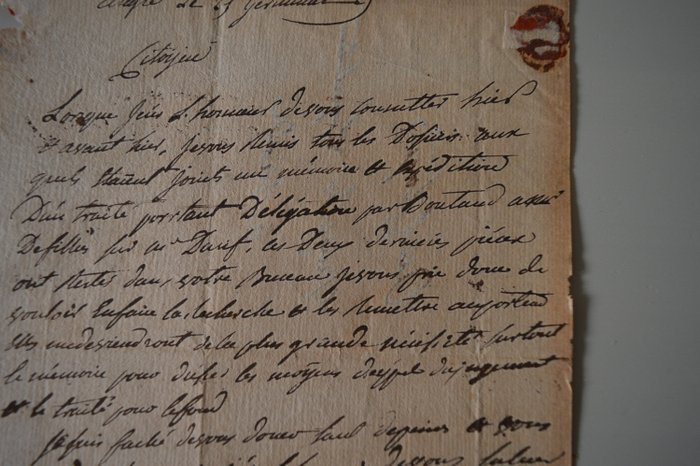 le 25 Germinal
Citoyen
Lorque j'eus L'honneur devous consulter hier
et avant hier, Jevous Remis tous les Dossiers aux
quels Etaient joints un mémoire et expédition
D'un traité portant Délégation par Boutaud a
Defilles sur Mr. Dauf, ces Deux dernieres pièces
ont Restés dans votre Bureau jevous prie donc de
vouloir Enfaire la Recherche et les Remettre auporteur
Elles medeviendront dela plus grande nécessité surtout
le mémoire pour les moyens d'appel dujugement
et le traité pour lefond
Jesuis faché devous donner tant de peines et vous